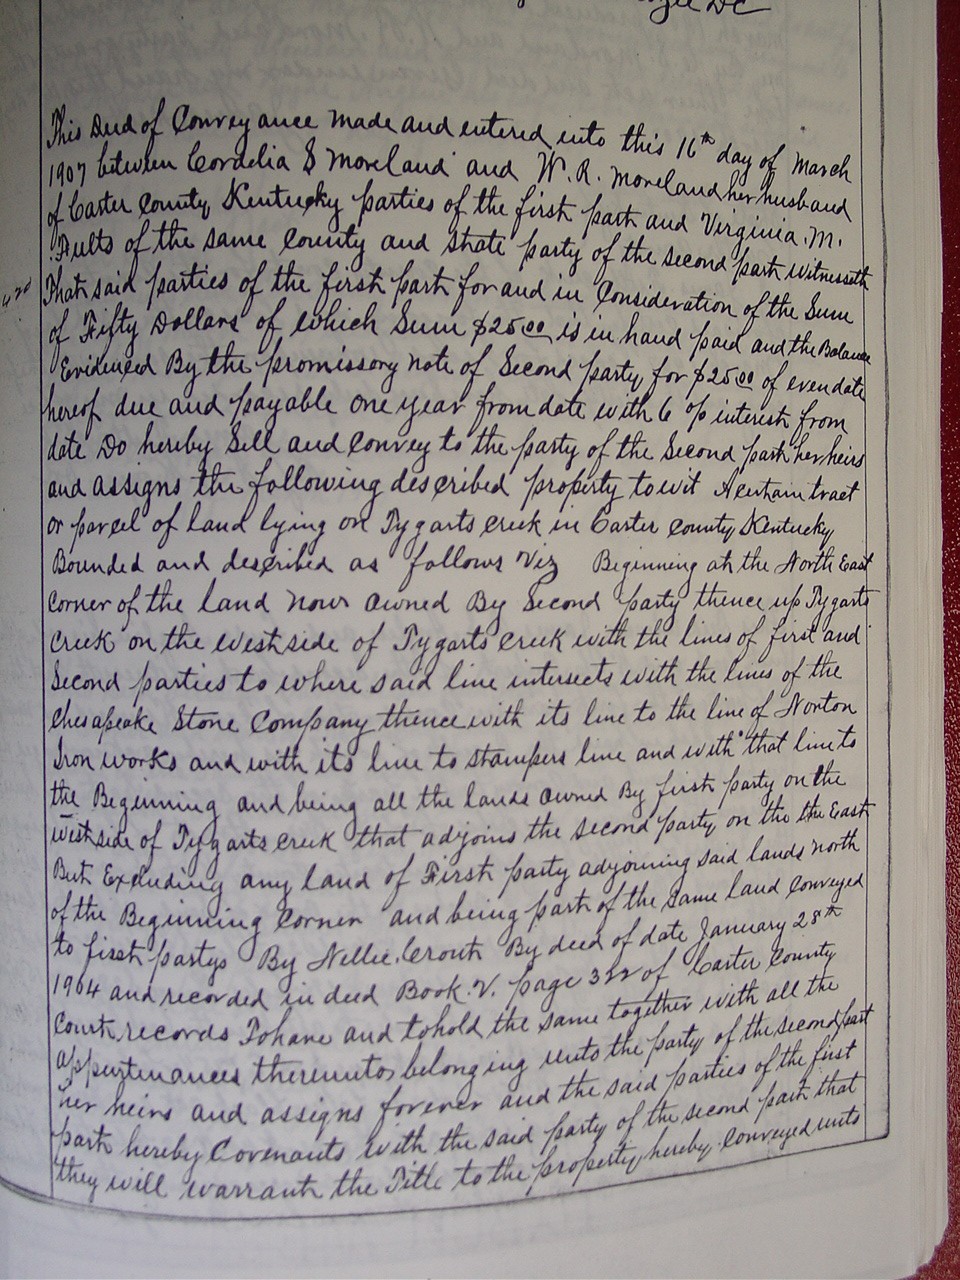 DC
This Deed of Conveyance made and entered into this 16th day of March
1907 between Cordelia S Moreland and W. R. Moreland her husband
of Carter County Kentucky parties of the first part and Virginia. M.
Fults of the same County and State party of the second part witnesseth
That said parties of the first part for and in Consideration of the Sum
of Fifty Dollars of which Sum $25.00 is in hand paid and the Balance
Evidenced By the promissory note of Second party for $25.00 of even date
hereof due and payable one year from date with 6 % interest from
date Do hereby Sell and Convey to the party of the Second part her heirs
and assigns the following described property to wit A certain tract
or parcel of land lying on Tygarts Creek in Carter County Kentucky
Bounded and described as follows Viz Beginning at the North East
Corner of the land now owned By Second party thence up Tygarts
Creek on the west side of Tygarts Creek with the lines of first and
Second parties to where said line intersects with the lines of the
Chesapeake Stone Company thence with its line to the line of Norton
Iron works and with its line to Stampers line and with that line to
the Beginning and being all the lands owned By first party on the
west side of Tygarts Creek that adjoins the second party on the the East
But Excluding any land of First party adjoining said lands north
of the Beginning Corner and being part of the same land Conveyed
to first partys By Nellie Crouth By deed of date January 28th
1904 and recorded in deed Book. V. page 322 of Carter County
Court records To have and to hold the same together with all the
appurtenances thereunto belonging unto the party of the second part
her heirs and assigns forever and the said parties of the first
part hereby Covenants with the said party of the second part that
they will warrant the Title to the property hereby Conveyed unto